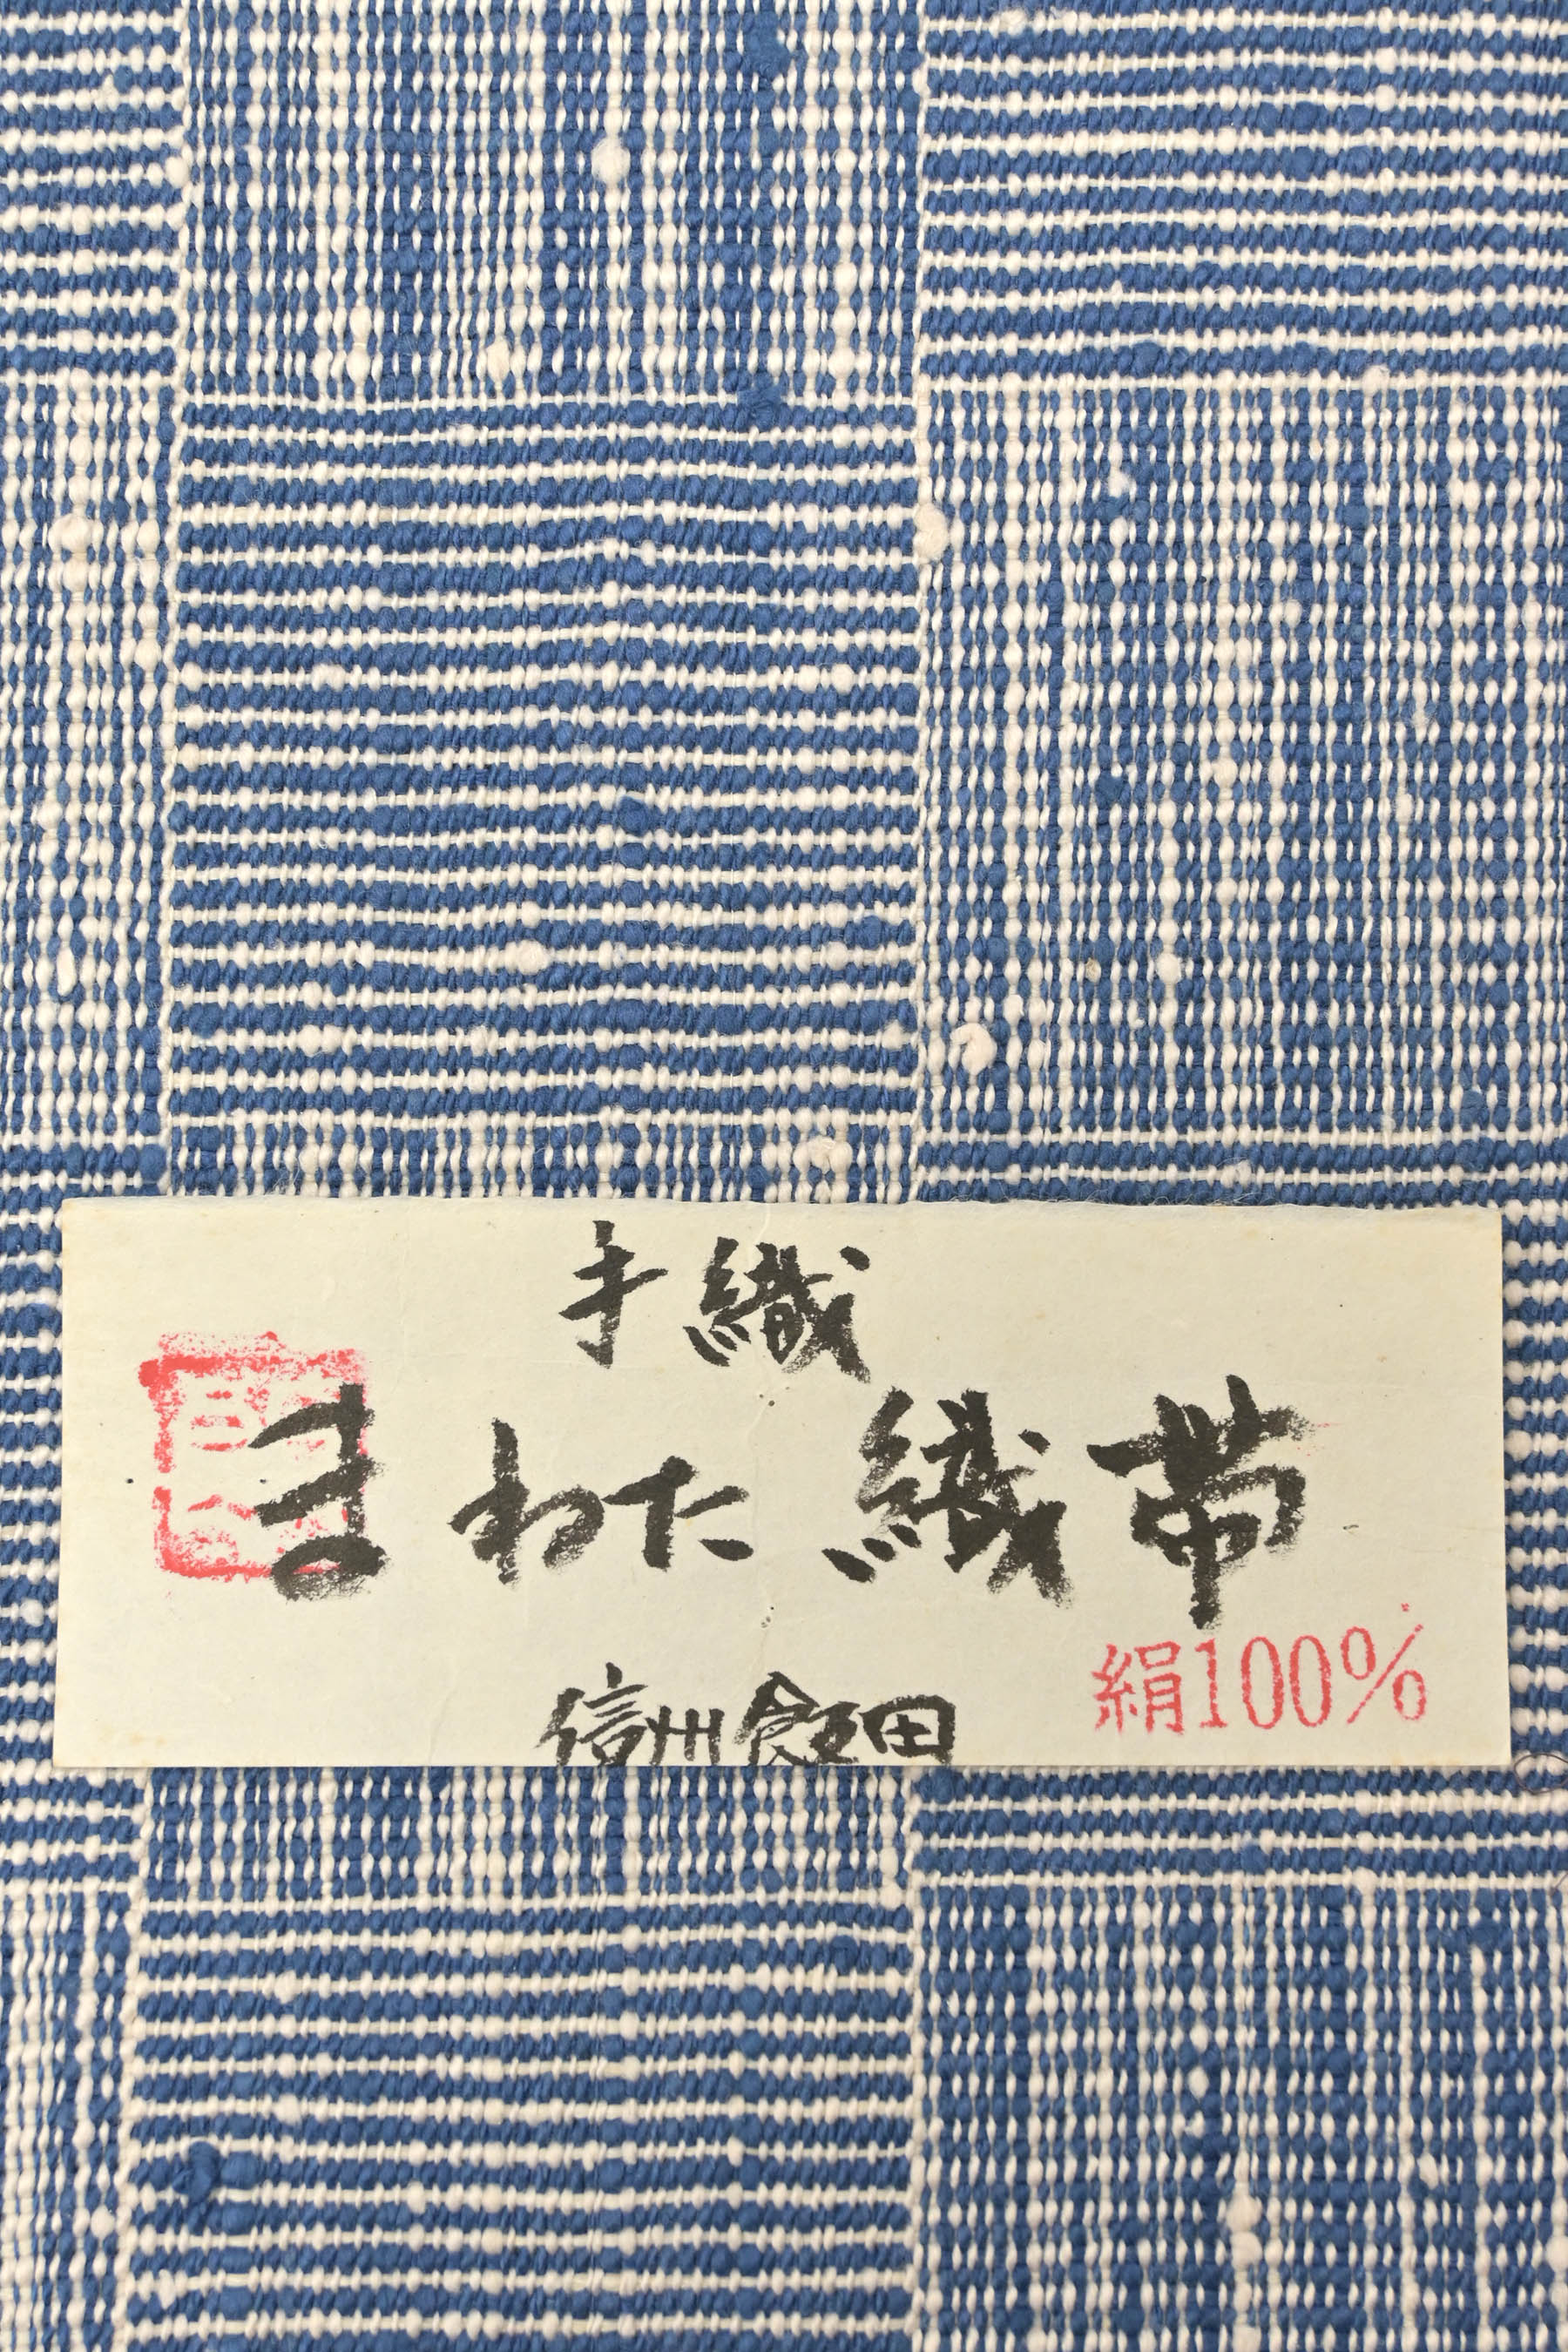 手織
まわた織帯
絹100%
信州飯田